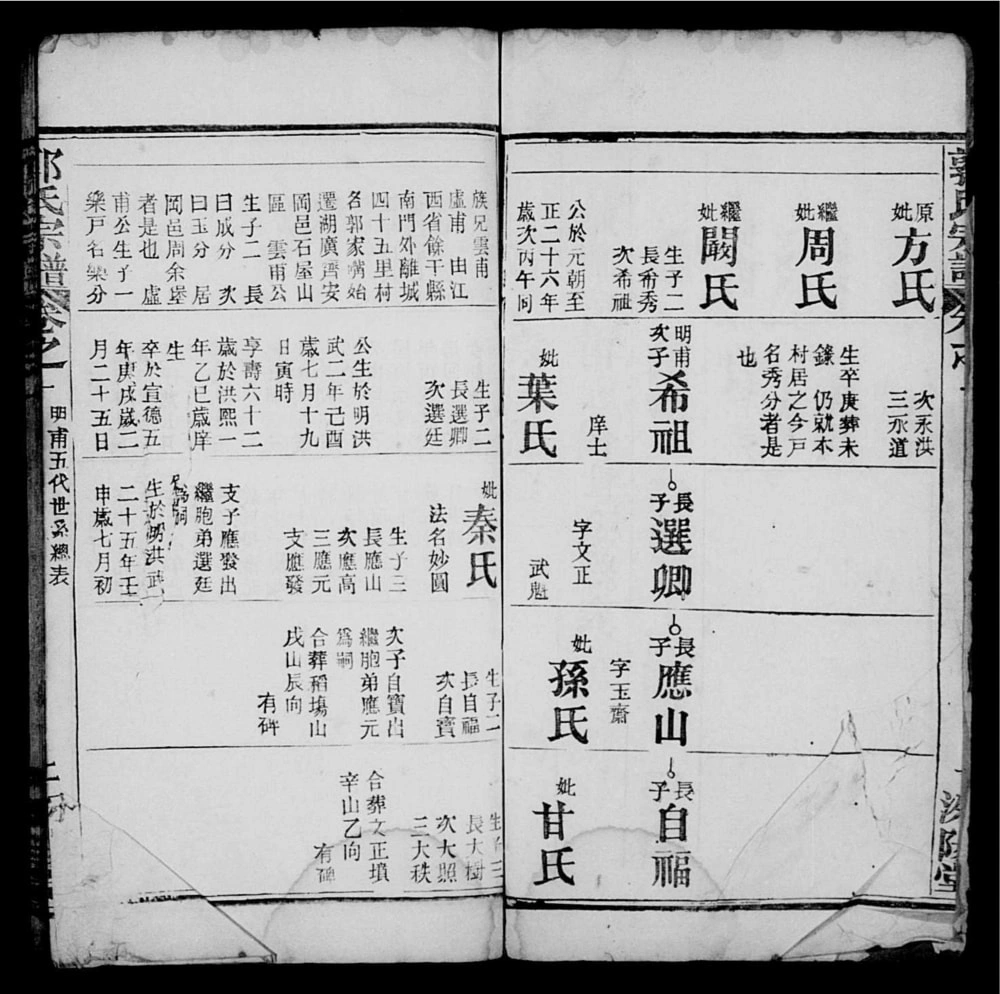 郭氏宗譜
卷之一
汾陽堂
原妣方氏
繼妣周氏
繼妣闕氏
生子二
長希秀
次希祖
公於元朝至
正二十六年
歲次丙午同
次永洪
三永道
生卒庚葬未
錄 仍就本
村居之今戶
名秀分者是
也
明甫次子希祖
庠士
妣葉氏
長子選卿
字文正
武魁
長子應山
字玉齋
妣孫氏
長子自福
妣甘氏
族兄雲甫
虛甫 由江
西省餘干縣
南門外離城
四十五里村
名郭家嘴始
遷湖廣濟安
岡邑石屋山
區 雲甫公
生子二 長
曰成分 次
曰玉分 居
岡邑周余壆
者是也 虛
甫公生子一
樂戶名榮分
生子二
長選卿
次選廷
公生於明洪
武二年己酉
歲七月十九
日寅時
享壽六十二
歲於洪熙一
年乙巳歲庠
生
卒於宣德五
年庚戌歲二
月二十五日
妣秦氏
法名妙圓
生子三
長應山
次應高
三應元
支應發
支子應發出
繼胞弟選廷
為嗣
生於明洪武
二十五年壬
申歲七月初
生子二
長自福
次自寶
次子自寶出
繼胞弟應元
為嗣
合葬稻塲山
戌山辰向
有碑
生子三
長大樹
次大照
三大秩
合葬文正墳
辛山乙向
有碑
郭氏宗譜
卷之一
明甫五代世系總表